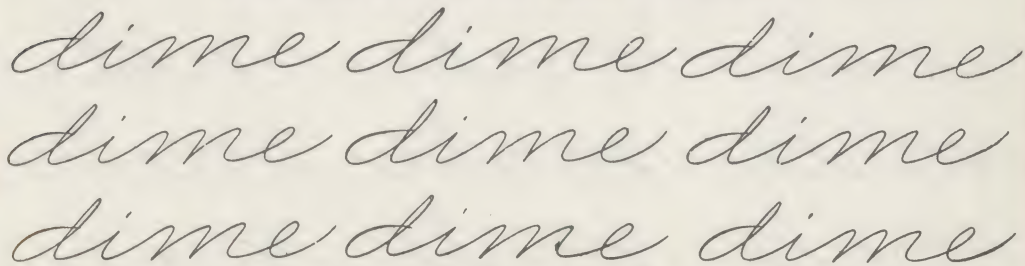 dime dime dime
dime dime dime
dime dime dime